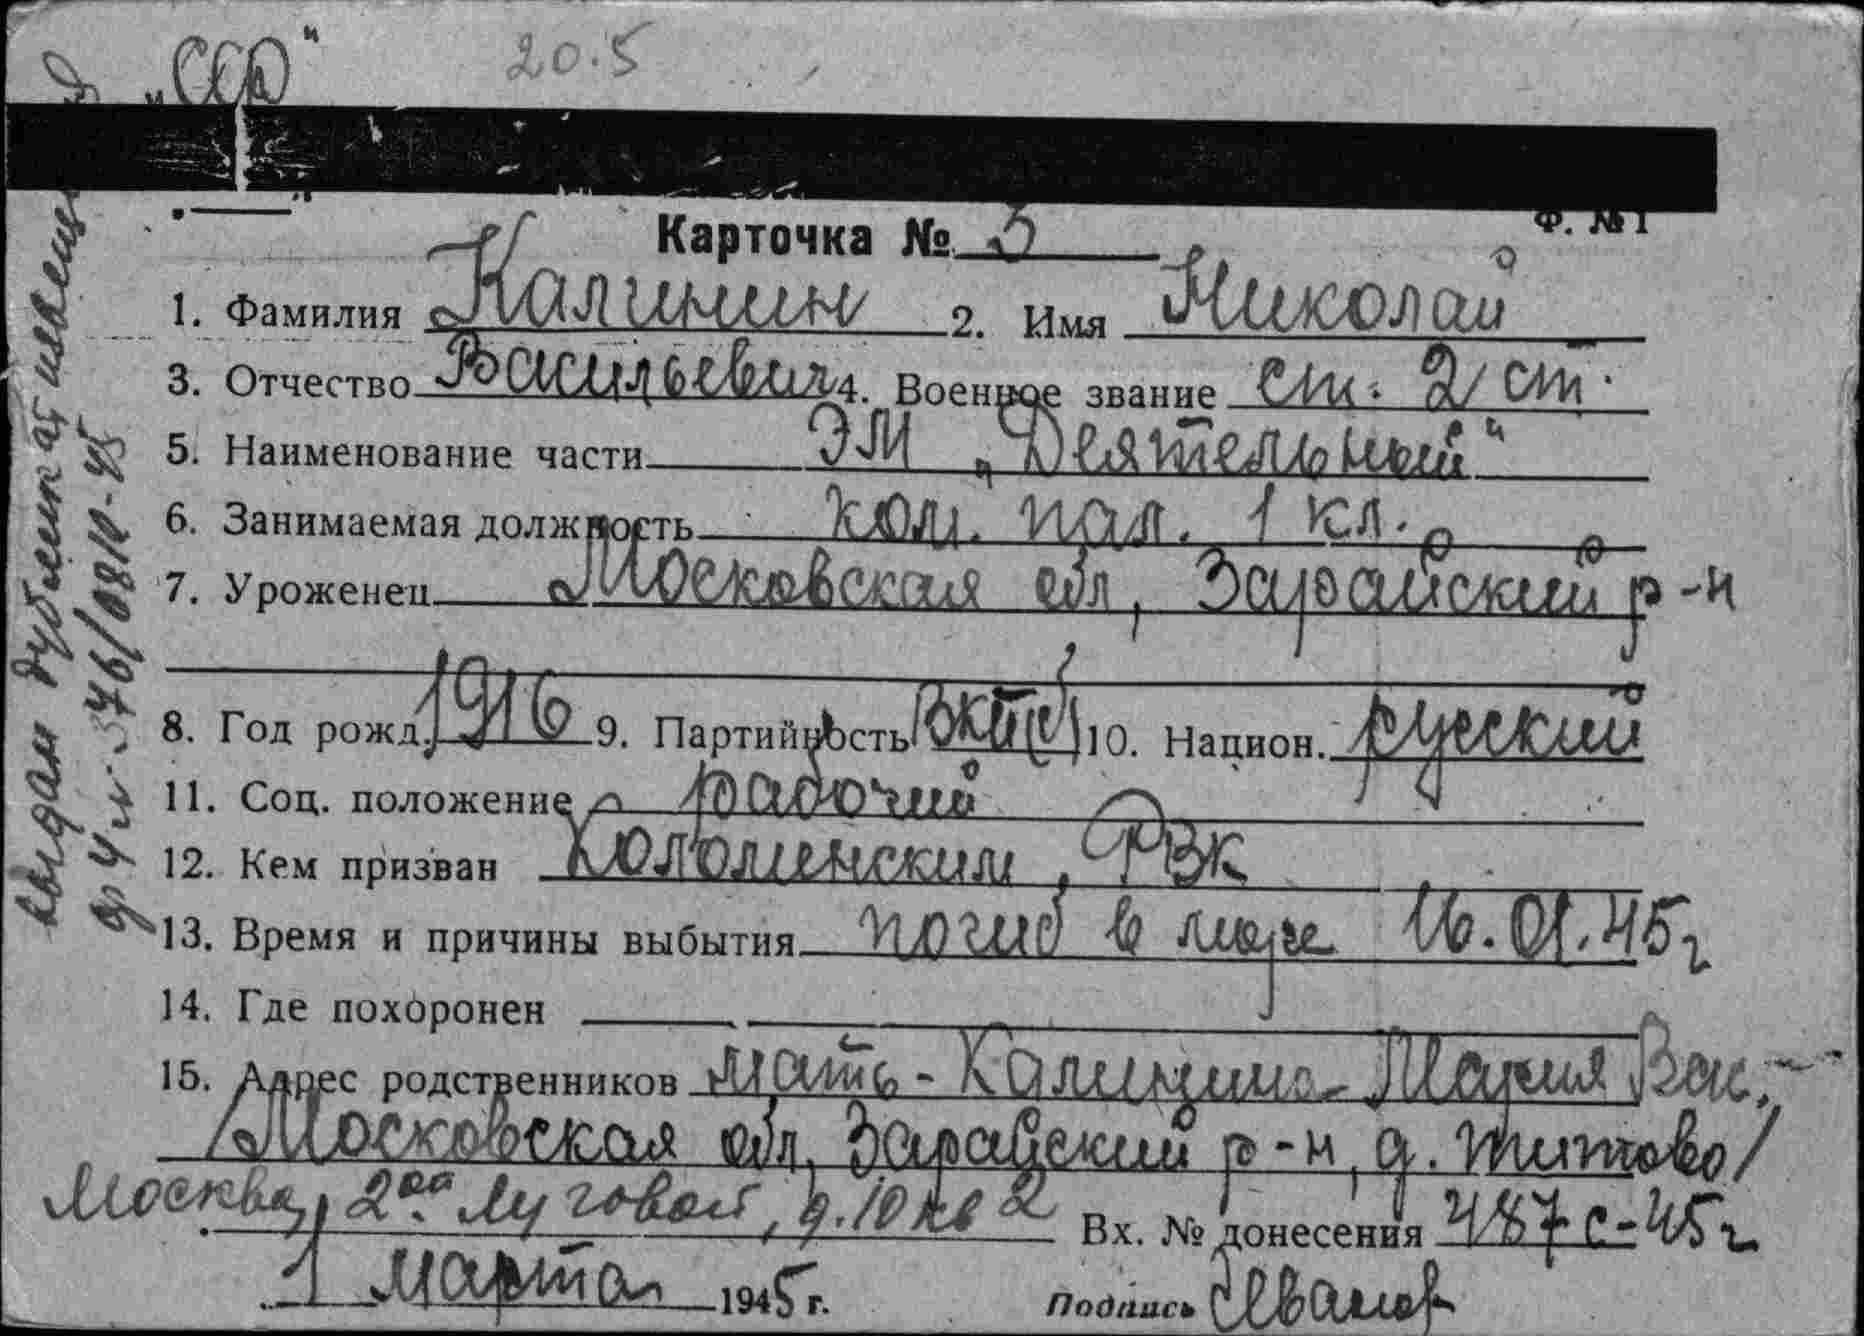 „ССФ"
20.5
Ф. №1
Карточка № 3
1. Фамилия Калинин 2. Имя Николай
3. Отчество Васильевич 4. Военное звание ст. 2 ст.
5. Наименование части ЭМ „Деятельный"
6. Занимаемая должность ком. пал. 1 кл.
7. Уроженец Московская обл, Зарайский р-н
8. Год рожд. 1916 9. Партийность ВКП(б) 10. Национ. русский
11. Соц. положение рабочий
12. Кем призван Коломенским РВК
13. Время и причины выбытия погиб в море 16.01.45г
14. Где похоронен
15. Адрес родственников мать - Калинина Мария Вас.
/Московская обл, Зарайский р-н, д. Титово/
Москва, 2ая Луговая, д.10 кв 2 Вх. № донесения 487с-45г
1 марта 1945 г. Подпись Иванов
выдан дубликат извещ